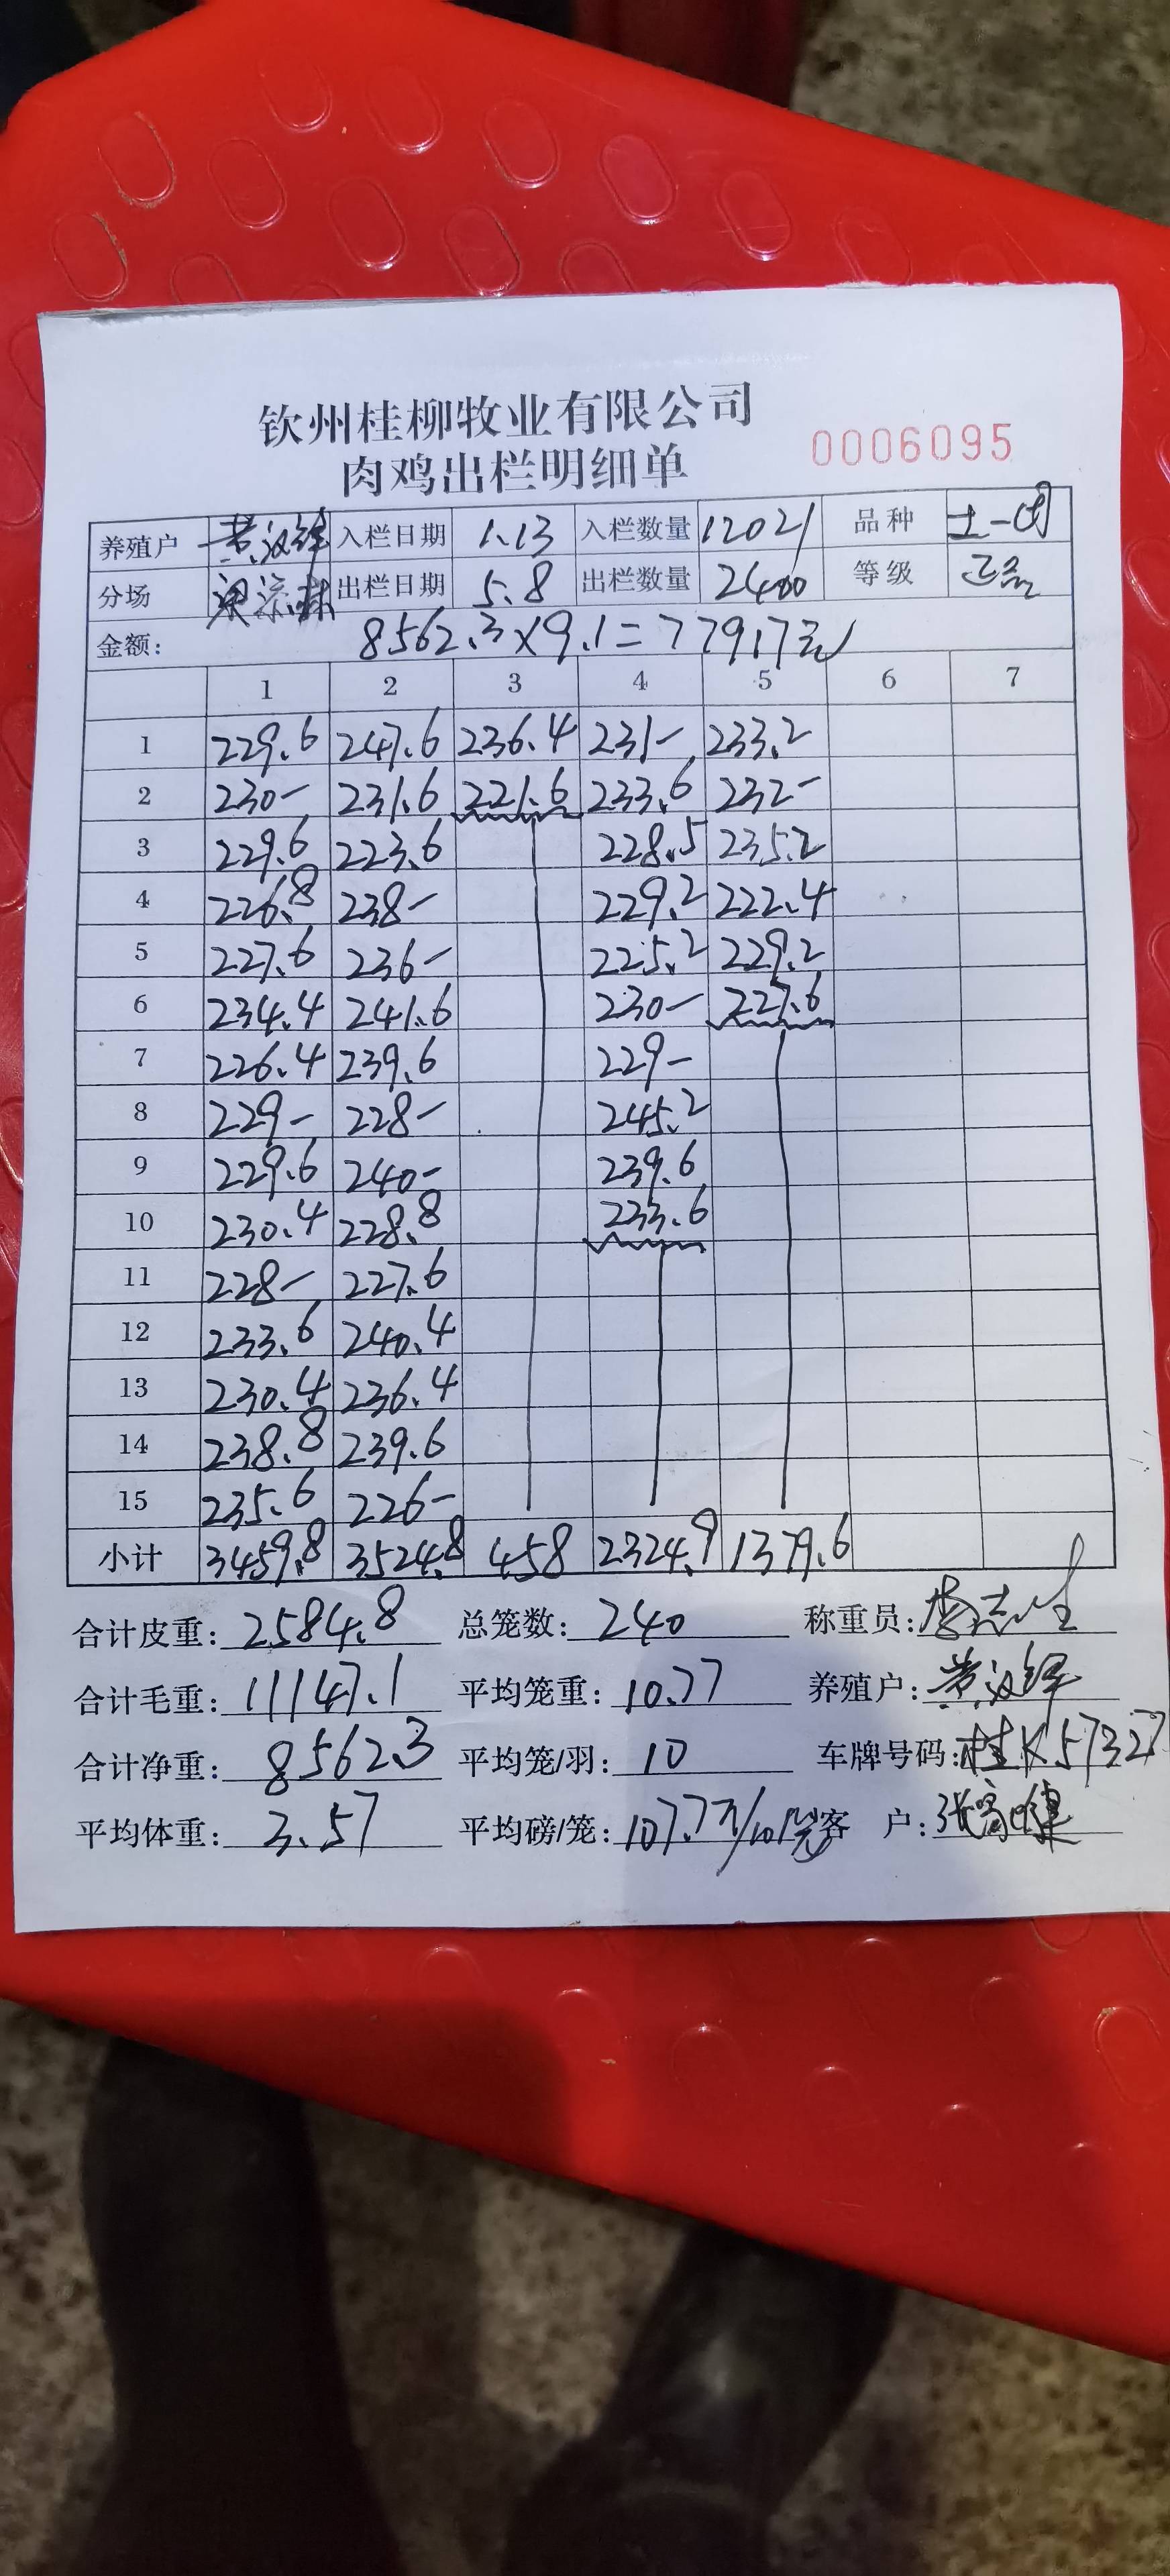 钦州桂柳牧业有限公司
0006095
肉鸡出栏明细单
养殖户 黄汉锋 入栏日期 1.13 入栏数量 12021 品种
分场 出栏日期 5.8 出栏数量 2400 等级
金额: 8562.3×9.1=77917元
1 2 3 4 5 6 7
1 229.6 247.6 236.4 231- 233.2
2 230- 231.6 221.6 233.6 232-
3 229.6 223.6 228.5 235.2
4 226.8 238- 229.2 222.4
5 227.6 236- 225.2 229.2
6 234.4 241.6 230- 227.6
7 226.4 239.6 229-
8 229- 228- 245.2
9 229.6 240- 239.6
10 230.4 228.8 233.6
11 228- 227.6
12 233.6 240.4
13 230.4 236.4
14 238.8 239.6
15 235.6 226-
小计 3459.8 3524.8 458 2324.9 1379.6
合计皮重: 2584.8 总笼数: 240 称重员:
合计毛重: 11147.1 平均笼重: 10.77 养殖户: 黄汉锋
合计净重: 8562.3 平均笼/羽: 10 车牌号码: 桂K57327
平均体重: 3.57 平均磅/笼: 107.7斤/10笼 客 户: